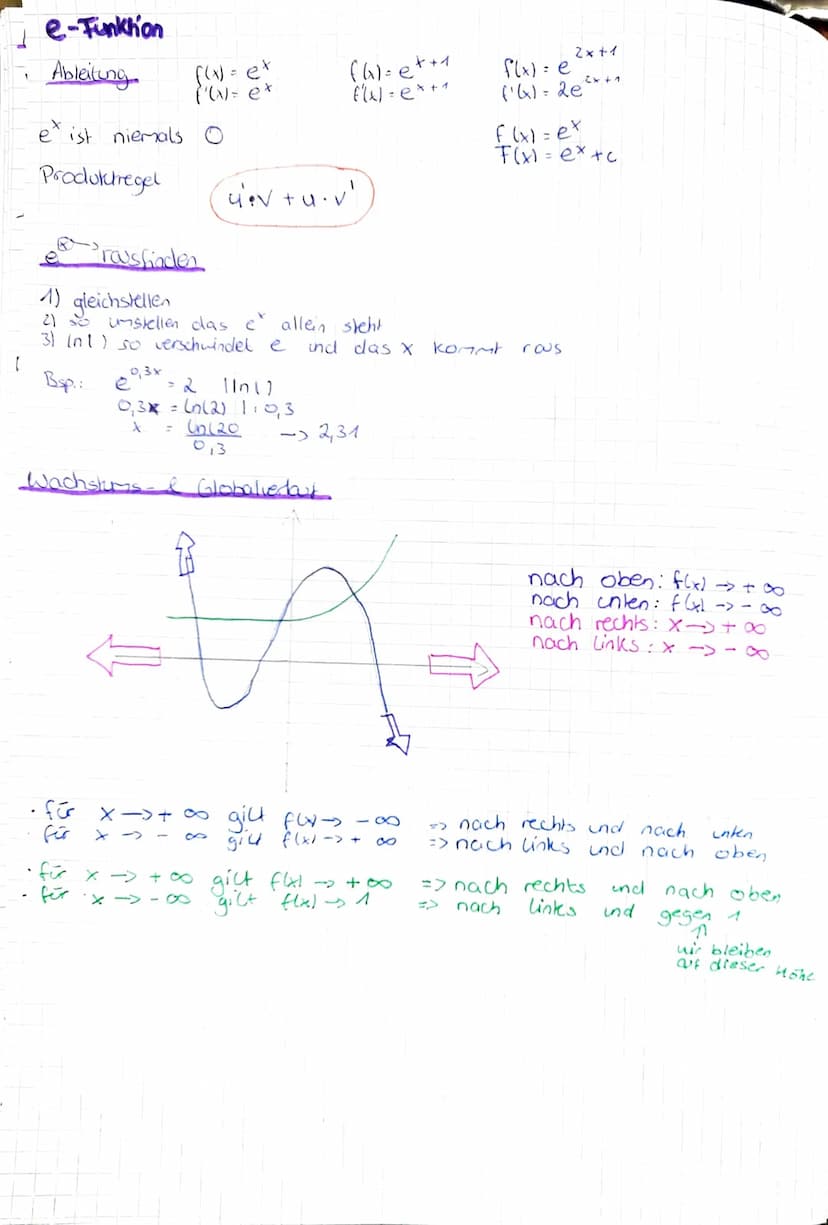 e-Funktion
Ableitung f(x) = e^x f(x) = e^{x+1} f(x) = e^{2x+1}
f'(x) = e^x f'(x) = e^{x+1} f'(x) = 2e^{2x+1}
e^x ist niemals 0 f(x) = e^x
F(x) = e^x + c
Produktregel u'·v + u·v'
e^ⓧ → rausfinden
1) gleichstellen
2) so umstellen das e^x allein steht
3) ln() so verschwindet e und das x kommt raus
Bsp.: e^{0,3x} = 2 | ln()
0,3x = ln(2) | : 0,3
x = ln(20 / 0,3 → 2,31
Wachstums- & Globalverlauf
nach oben: f(x) → + ∞
nach unten: f(x) → - ∞
nach rechts: x → + ∞
nach links: x → - ∞
· für x → + ∞ gilt f(x) → - ∞ => nach rechts und nach unten
für x → - ∞ gilt f(x) → + ∞ => nach links und nach oben
· für x → + ∞ gilt f(x) → + ∞ => nach rechts und nach oben
- für x → - ∞ gilt f(x) → 1 => nach links und gegen 1
⇑
wir bleiben
auf dieser Höhe